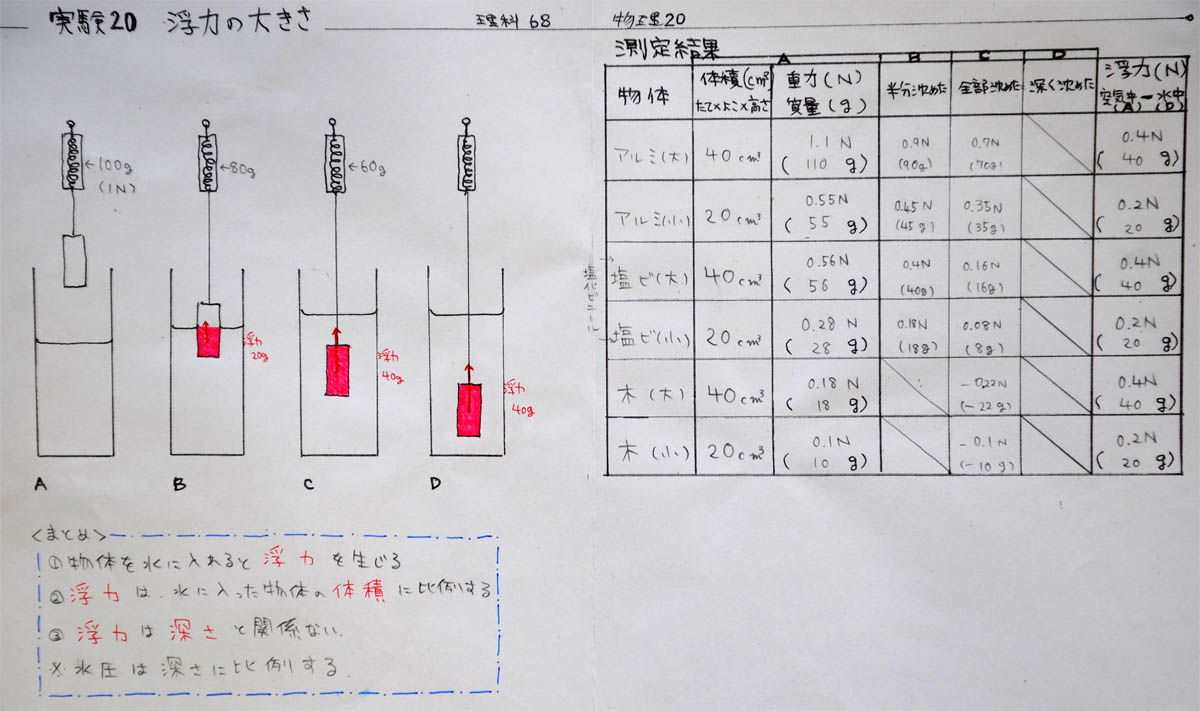 実験20 浮力の大きさ
理科 68
物理20
←100g
(1N)
←80g
←60g
浮力
20g
浮力
40g
浮力
40g
A B C D
<まとめ>
①物体を水に入れると浮力を生じる
②浮力は、水に入った物体の体積に比例する
③浮力は深さと関係ない.
※水圧は深さに比例する.
測定結果
A B C D
物体 体積(cm³) たて×よこ×高さ 重力(N) 質量(g) 半分沈めた 全部沈めた 深く沈めた 浮力(N) 空気中－水中 (A) (D)
アルミ(大) 40cm³ 1.1N 0.9N 0.7N 0.4N
(110g) (90g) (70g) (40g)
アルミ(小) 20cm³ 0.55N 0.45N 0.35N 0.2N
(55g) (45g) (35g) (20g)
塩化ビニール
→塩ビ(大) 40cm³ 0.56N 0.4N 0.16N 0.4N
(56g) (40g) (16g) (40g)
→塩ビ(小) 20cm³ 0.28N 0.18N 0.08N 0.2N
(28g) (18g) (8g) (20g)
木(大) 40cm³ 0.18N -0.22N 0.4N
(18g) (-22g) (40g)
木(小) 20cm³ 0.1N -0.1N 0.2N
(10g) (-10g) (20g)